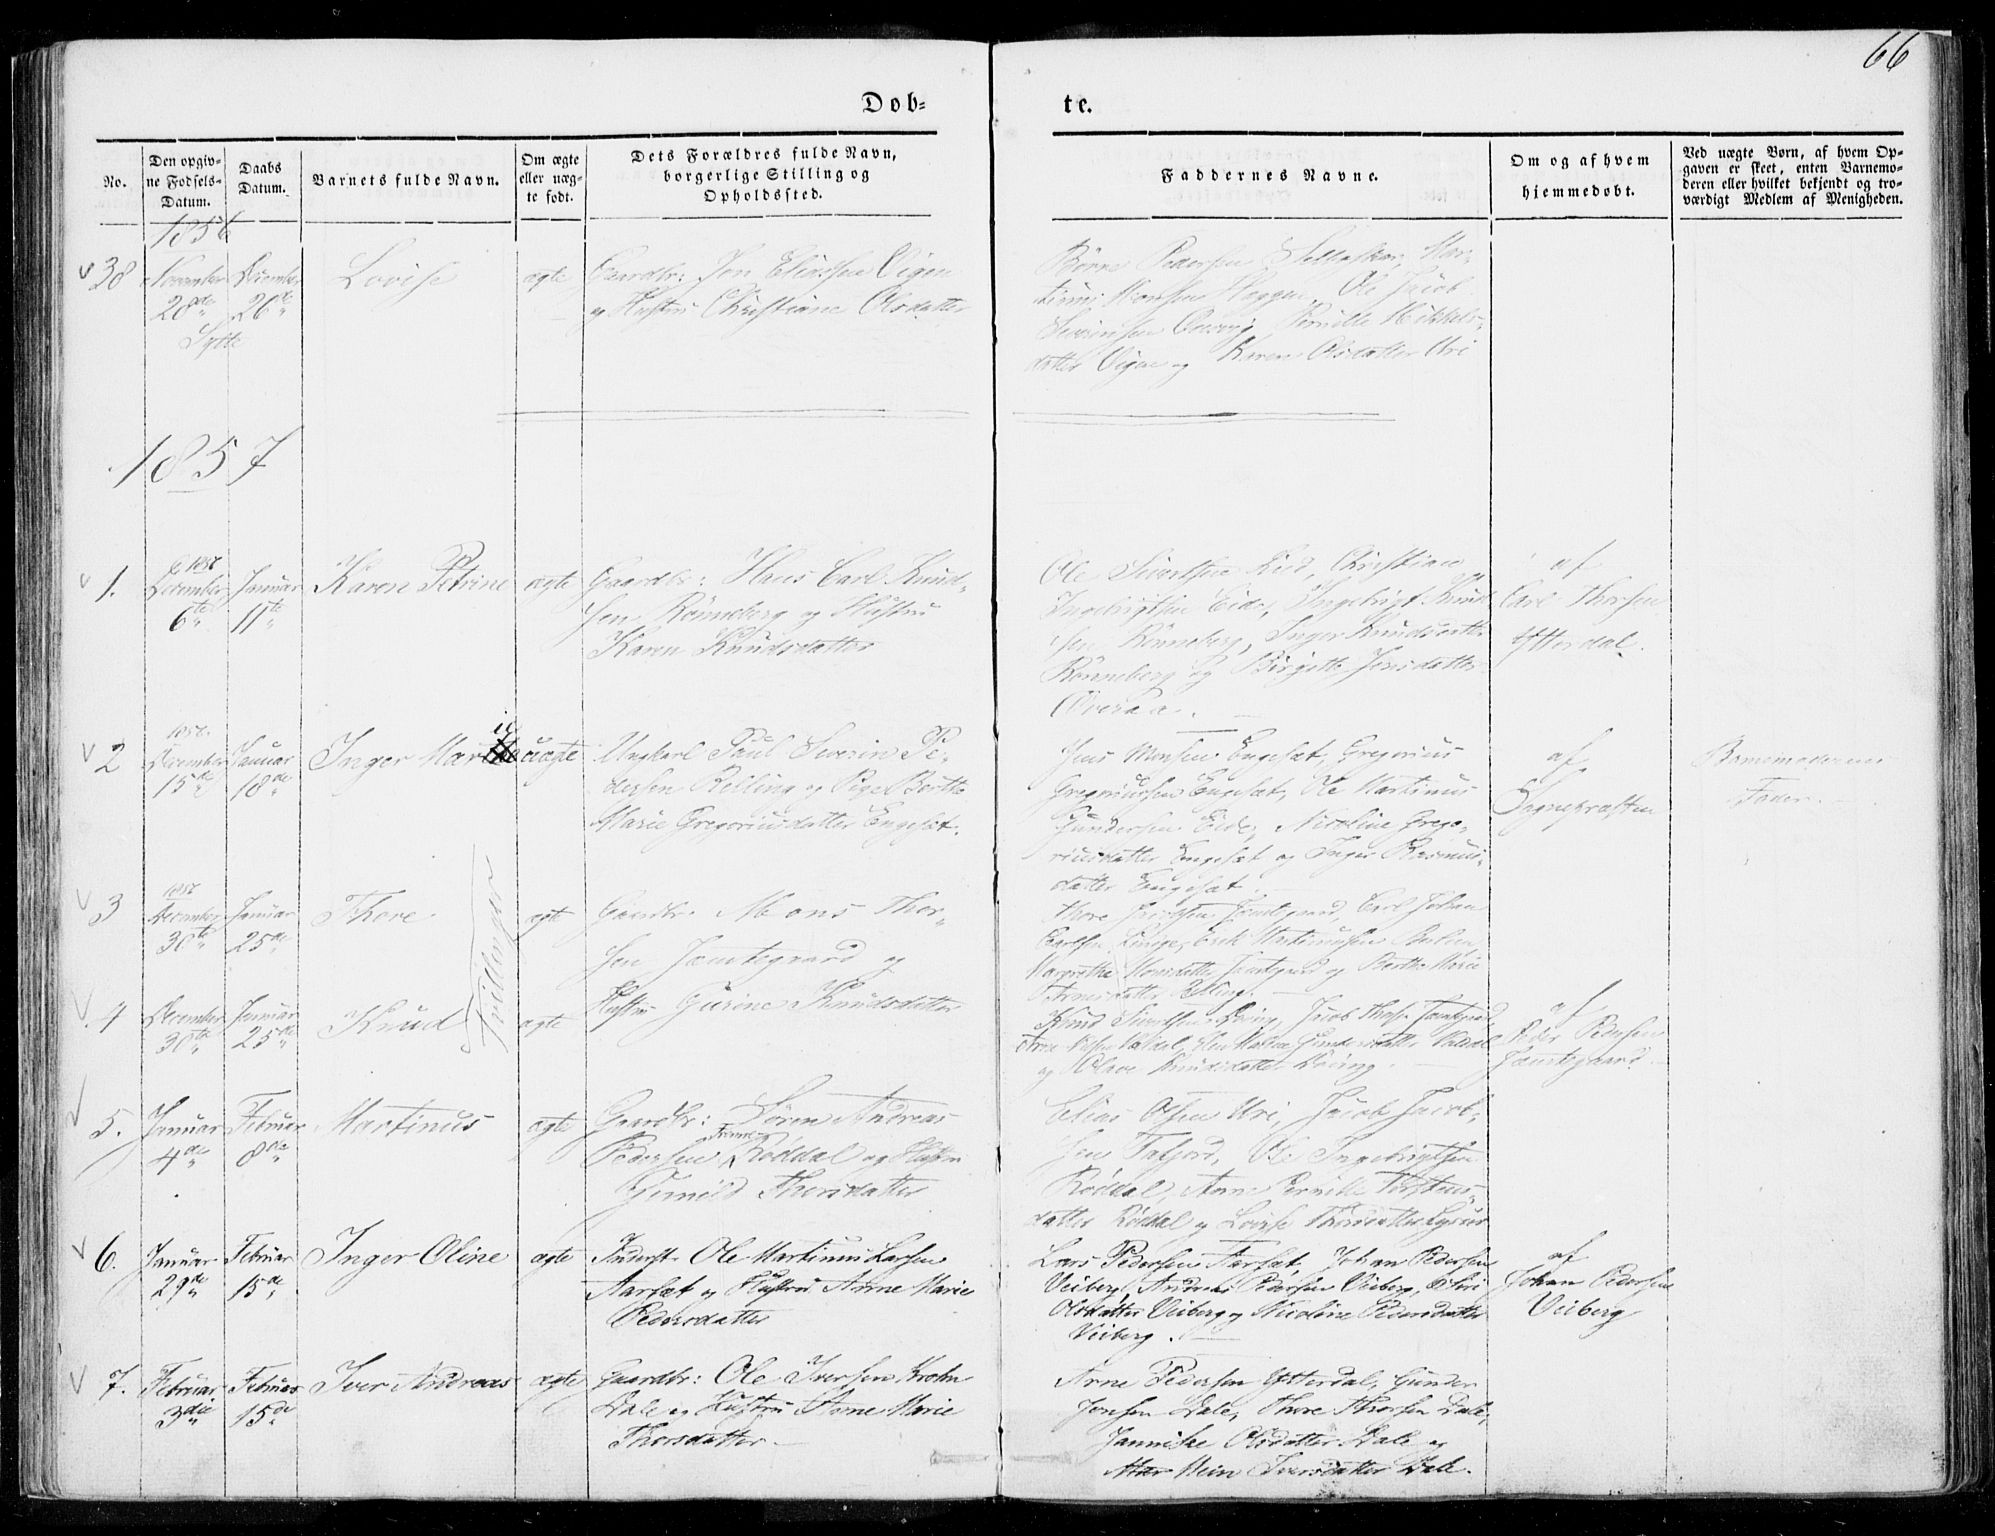 66
Døb-
te.
No.
Den opgiv-
ne Fødsels-
Datum.
Daabs
Datum.
Barnets fulde Navn.
Om ægte
eller uæg-
te født.
Dets Forældres fulde Navn,
borgerlige Stilling og
Opholdssted.
Faddernes Navne.
Om og af hvem
hjemmedøbt.
Ved uægte Børn, af hvem Op-
gaven er skeet, enten Barnemo-
deren eller hvilket bekjendt og tro-
værdigt Medlem af Menigheden.
1856
38
November
28de
Sytte
December
26de
Lovise
ægte
Gaardbr: Jon Eliassen Vigen
og Hustru Christiane Olsdatter
Børre Pedersen
Monsen Heggen, Ole Jacob
Severinsen Pernille Mikkels-
datter Vigen og Karen Olsdatter Uri
1857
1.
1856
December
6te
Januar
11te
Karen Petrine
ægte
Gaardbr: Hans Carl Knud-
sen Rønneberg og Hustru
Karen Knudsdatter
Ole Sivertsen Eid, Christian
Ingebrigtsen Eide, Ingebrigt Knud
sen Rønneberg, Inger Knudsdatter
Rønneberg og Birgitte Jensdatter
Øveraa.
af
Carl Thorsen
Ytterdal.
2
1856
December
15de
Januar
18de
Inger Marie
uægte
Ungkarl Paul Severin Pe-
dersen Relling og Pigel Berthe
Marie Gregoriusdatter Engeset.
Jens Monsen Engeset, Gregorius
Gregoriussen Engeset, Ole Martinus
Gundersen Eide, Nicoline Grego-
riusdatter Engeset og Inger Rasmus-
datter Engeset.
af
Sognepræsten
Barnemoderens
Fader.
3
1856
December
30te
Januar
25de
Thore
Tvillinger
ægte
Gaardbr. Mons Thor-
sen Jemtegaard og
Hustru Gurine Knudsdatter
Thore Jacobsen Jemtegaard, Carl Johan
Carlsen Linge, Erik Martinussen
Margrethe Monsdatter Jemtegaard og Berthe Marie
Arnesdatter Relling.
4
December
30te
Januar
25de
Knud
ægte
Knud Sivertsen Døving, Jacob Thors. Jemtegaard,
Arne Valdal, Gundersdatter Valdal
og Knudsdatter Døving.
af
Peder Pedersen
Jemtegaard
5.
Januar
4de
Februar
8de
Martinus
ægte
Gaardbr: Søren Andreas
Pedersen Rødal og Hustru
Gunild Thorsdatter
Elias Olsen Uri, Jacob Jacob-
sen Tafjord, Ole Ingebrigtsen
Røddal, Anne Pernille Torstens-
datter Røddal og Lovise Thorsdatter
6.
Januar
29de
Februar
15de
Inger Oline
ægte
Inderst. Ole Martinus Larsen
Aarset og Hustru Anne Marie
Pedersdatter
Lars Pedersen Aarset, Johan Pedersen
Veiberg, Andreas Pedersen Veiberg,
Olsdatter Veiberg og Nicoline Pedersdatter
Veiberg.
af
Johan Pedersen
Veiberg
7.
Februar
3die
Februar
15de
Iver Andreas
ægte
Gaardbr: Ole Iversen Krohn
Dale og Hustru Anne Marie
Thorsdatter.
Arne Pedersen Ytterdal, Gunder
Jensen Dale, Thore Thorsen Dale,
Jannike Olsdatter Dale og
Iversdatter Dale.